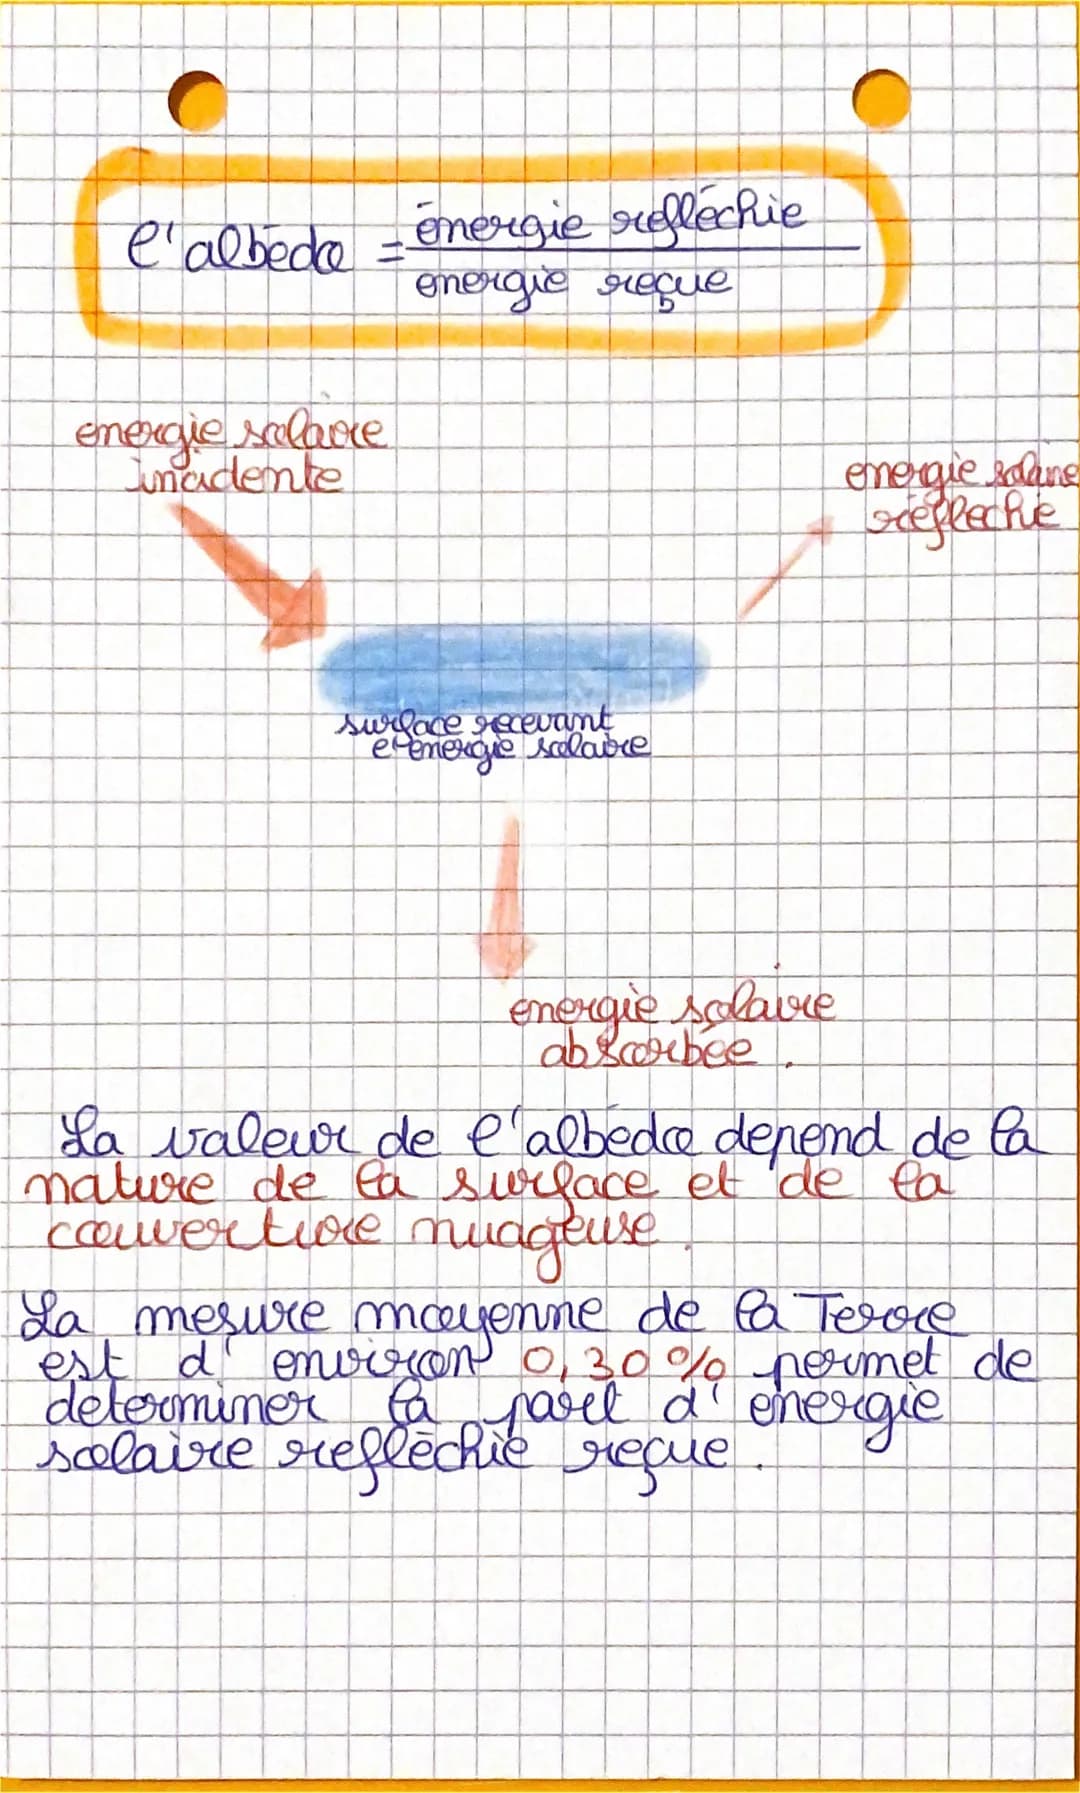 l'albédo = énergie refléchie
energie reçue
energie solaire
incidente
energie solaire
réflechie
surface recevant
l'energie solaire
energie solaire
absorbée.
La valeur de l'albédo depend de la
nature de la surface et de la
couverture nuageuse.
La mesure moyenne de la Terre
est d' environ 0,30% permet de
determiner la part d' énergie
solaire refléchie reçue.